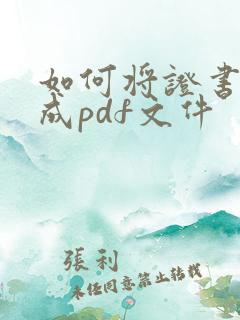 如何將證書
成pdf文件
張利
未經同意禁止轉載